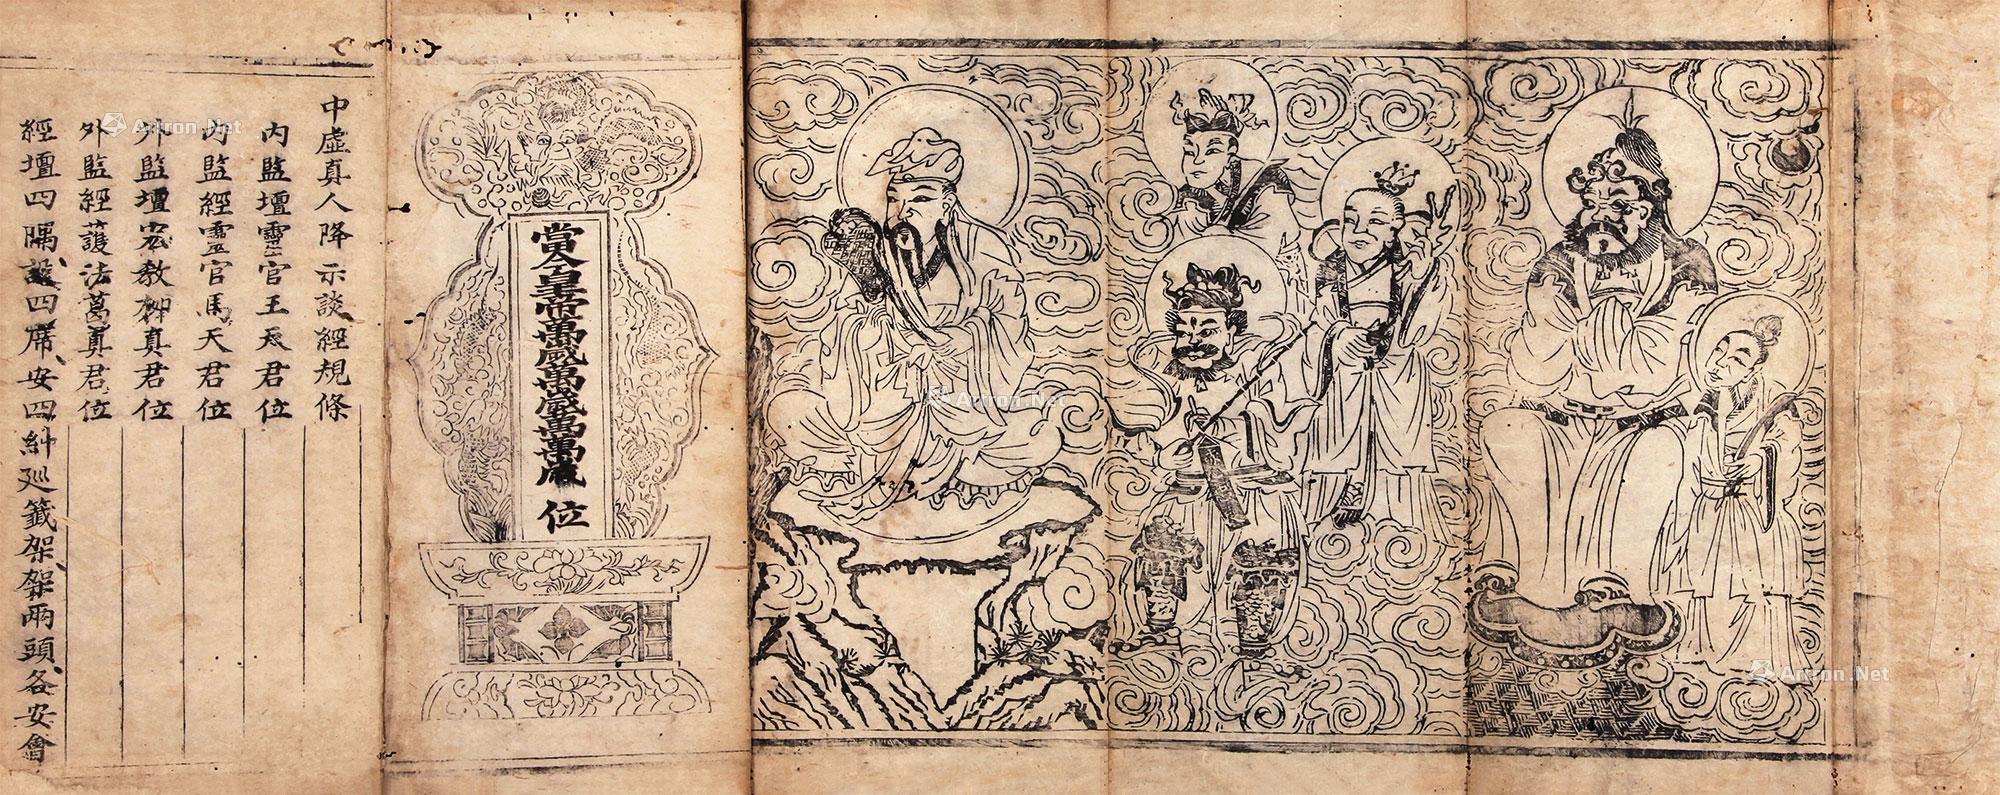 當今皇帝萬歲萬歲萬萬歲 位
中虛真人降示談經規條
內監壇靈官王天君位
內監經靈官馬天君位
外監壇宏教柳真君位
外監經護法葛真君位
經壇四隅設四席安四糾巡籤架架兩頭各安會
Artron.Net
Artron.Net
Artron.Net
Artron.Net